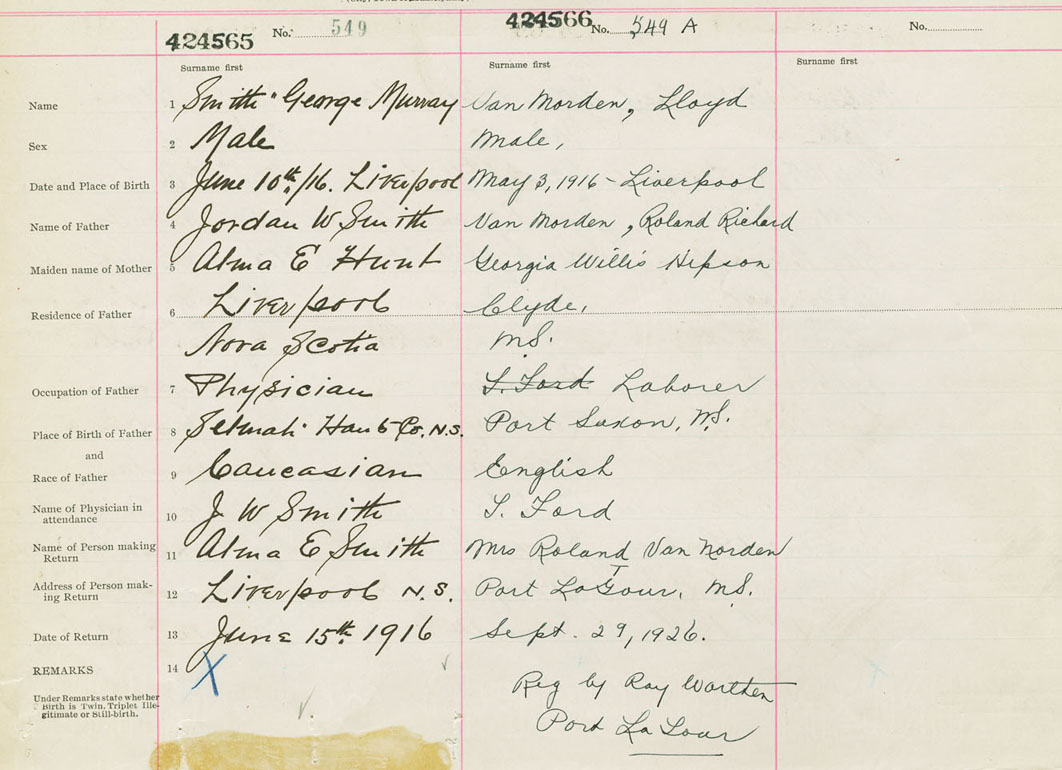 424565 No. 549 424566 No. 549 A No.
Surname first Surname first Surname first
Name 1 Smith George Murray Van Norden, Lloyd
Sex 2 Male Male,
Date and Place of Birth 3 June 10th/16. Liverpool May 3, 1916 - Liverpool
Name of Father 4 Jordan W Smith Van Norden, Roland Richard
Maiden name of Mother 5 Alma E Hunt Georgia Willis Hipson
Residence of Father 6 Liverpool Clyde,
Nova Scotia N.S.
Occupation of Father 7 Physician S. Ford Laborer
Place of Birth of Father 8 Selmah Hants Co. N.S. Port Saxon, N.S.
and
Race of Father 9 Caucasian English
Name of Physician in
attendance 10 J W Smith S. Ford
Name of Person making
Return 11 Alma E Smith Mrs Roland Van Norden
Address of Person mak-
ing Return 12 Liverpool N.S. Port LaTour, N.S.
Date of Return 13 June 15th 1916 Sept. 29, 1926.
REMARKS 14 X
Under Remarks state whether
Birth is Twin, Triplet Ille-
gitimate or Still-birth.
Reg by Ray Worthen
Port La Tour